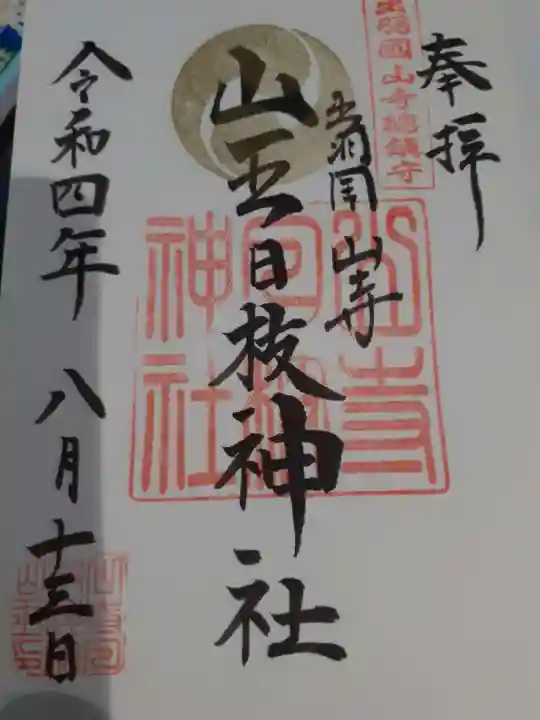 奉拝
出羽國山寺總鎮守
出羽国 山寺
山王日枝神社
山寺日枝神社
令和四年 八月 十三日